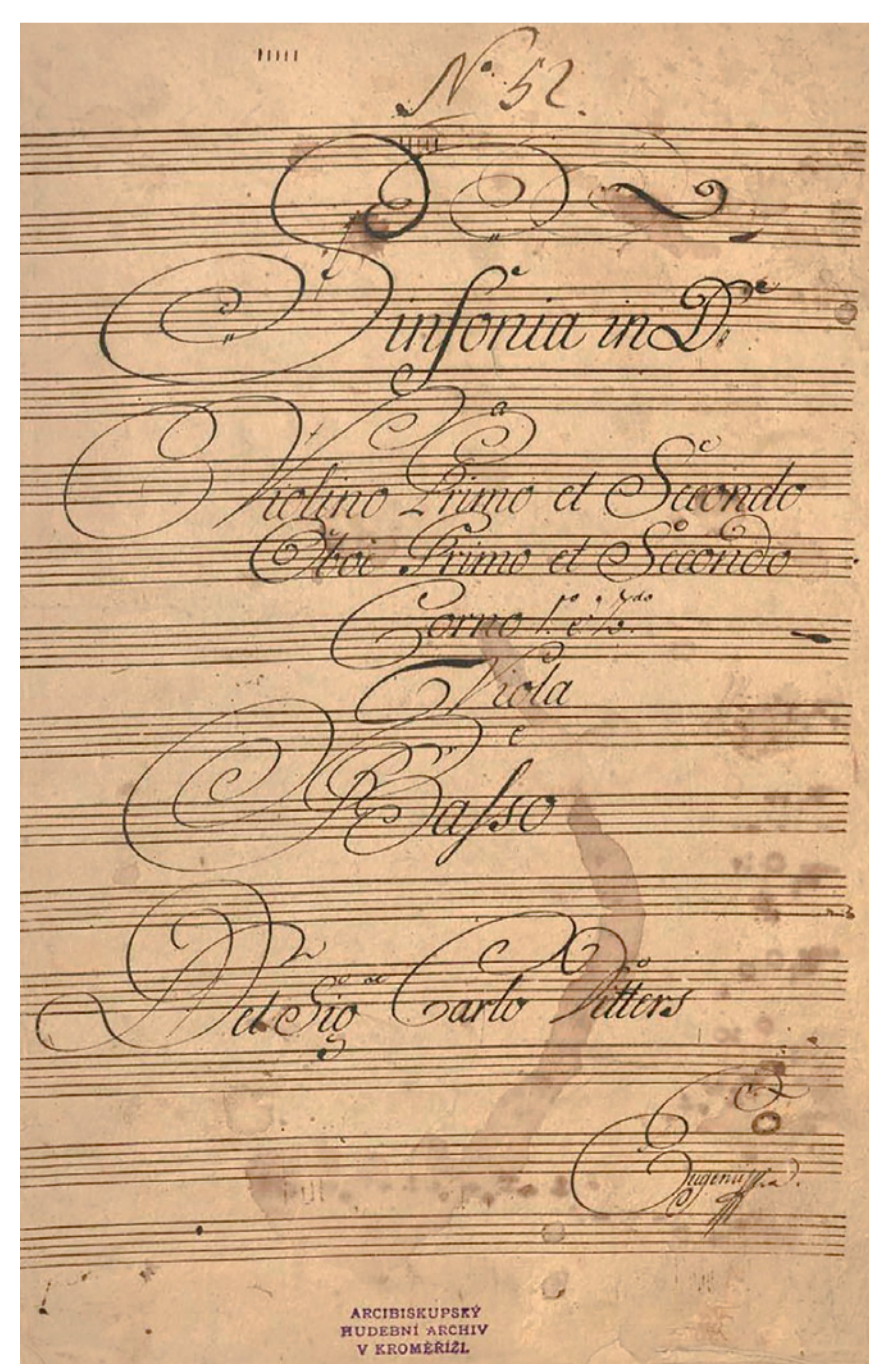 No. 52
Sinfonia in D.
a
Violino Primo et Secondo
Oboi Primo et Secondo
Corno 1.o e 2.do
Viola
e
Basso
Del Sig.re Carlo Ditters
ARCIBISKUPSKÝ
HUDEBNÍ ARCHIV
V KROMĚŘÍŽI.